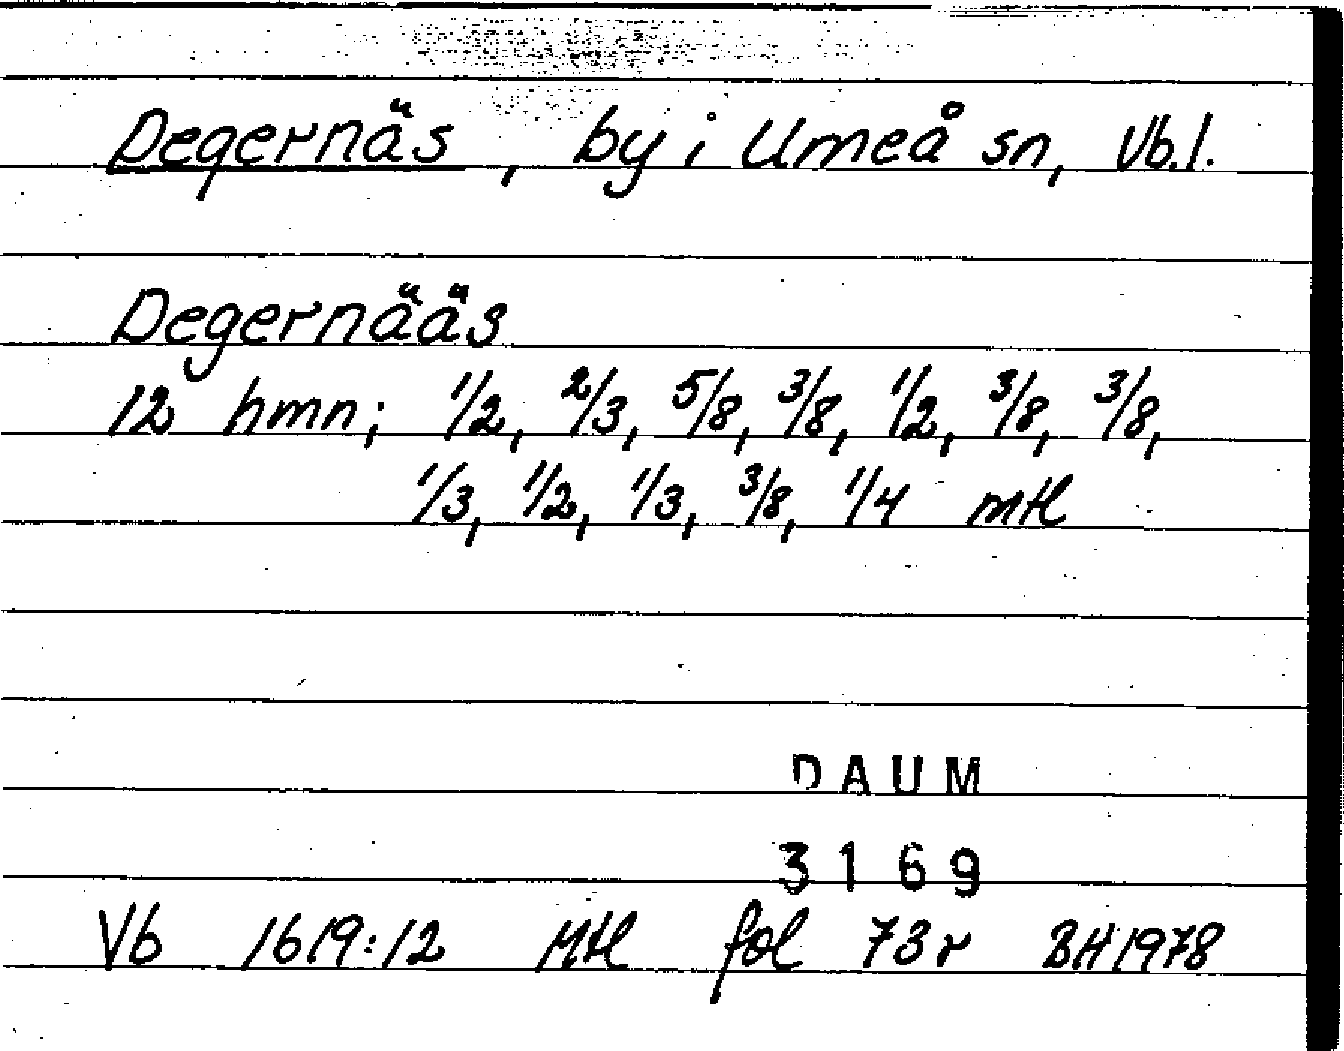 Degernäs, by i Umeå sn, Vb.l.
Degernääs
12 hmn; 1/2, 2/3, 5/8, 3/8, 1/2, 3/8, 3/8,
1/3, 1/2, 1/3, 3/8, 1/4 mtl
DAUM
3169
Vb 1619:12 Mtl fol 73r BH 1978